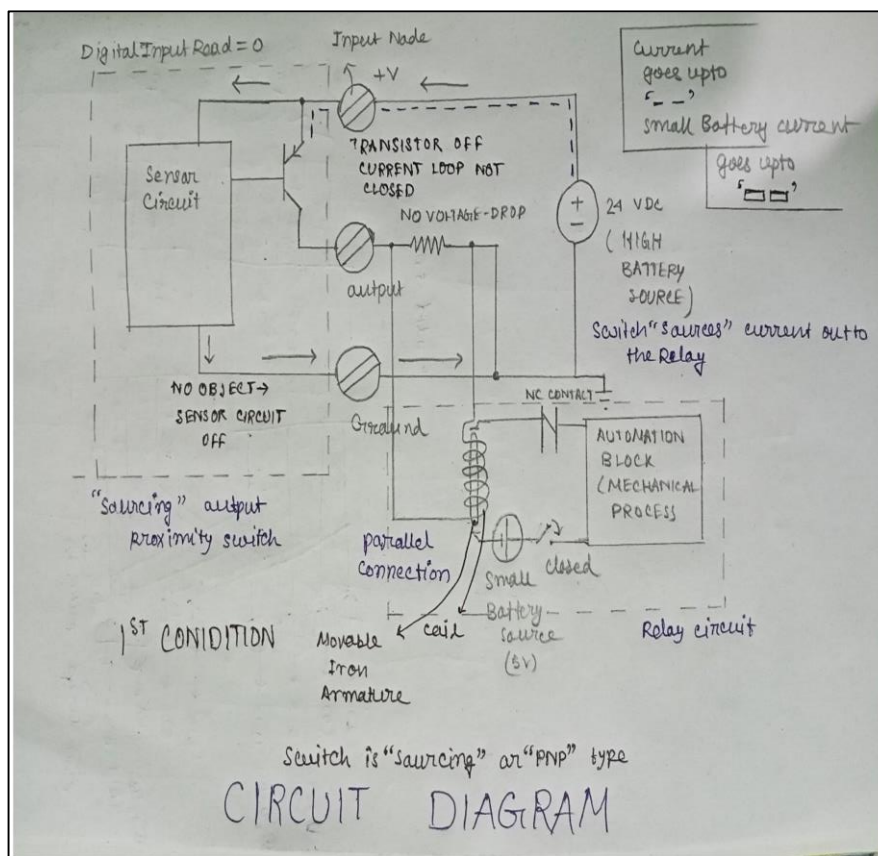 Digital Input Road = 0
Input Node
+V
Current
goes upto
‘_ _’
small Battery current
goes upto
‘▭▭’
TRANSISTOR OFF
CURRENT LOOP NOT
CLOSED
Sensor
Circuit
NO VOLTAGE-DROP
+
-
24 VDC
(HIGH
BATTERY
SOURCE)
output
Switch "sources" current out to
the Relay
NO OBJECT→
SENSOR CIRCUIT
OFF
Ground
NC CONTACT
AUTOMATION
BLOCK
(MECHANICAL
PROCESS
"Sourcing" output
proximity switch
parallel
connection
small
Battery
source
(5V)
closed
Relay circuit
1ST CONIDITION
Movable
Iron
Armature
coil
Switch is "Sourcing" or "PNP" type
CIRCUIT DIAGRAM